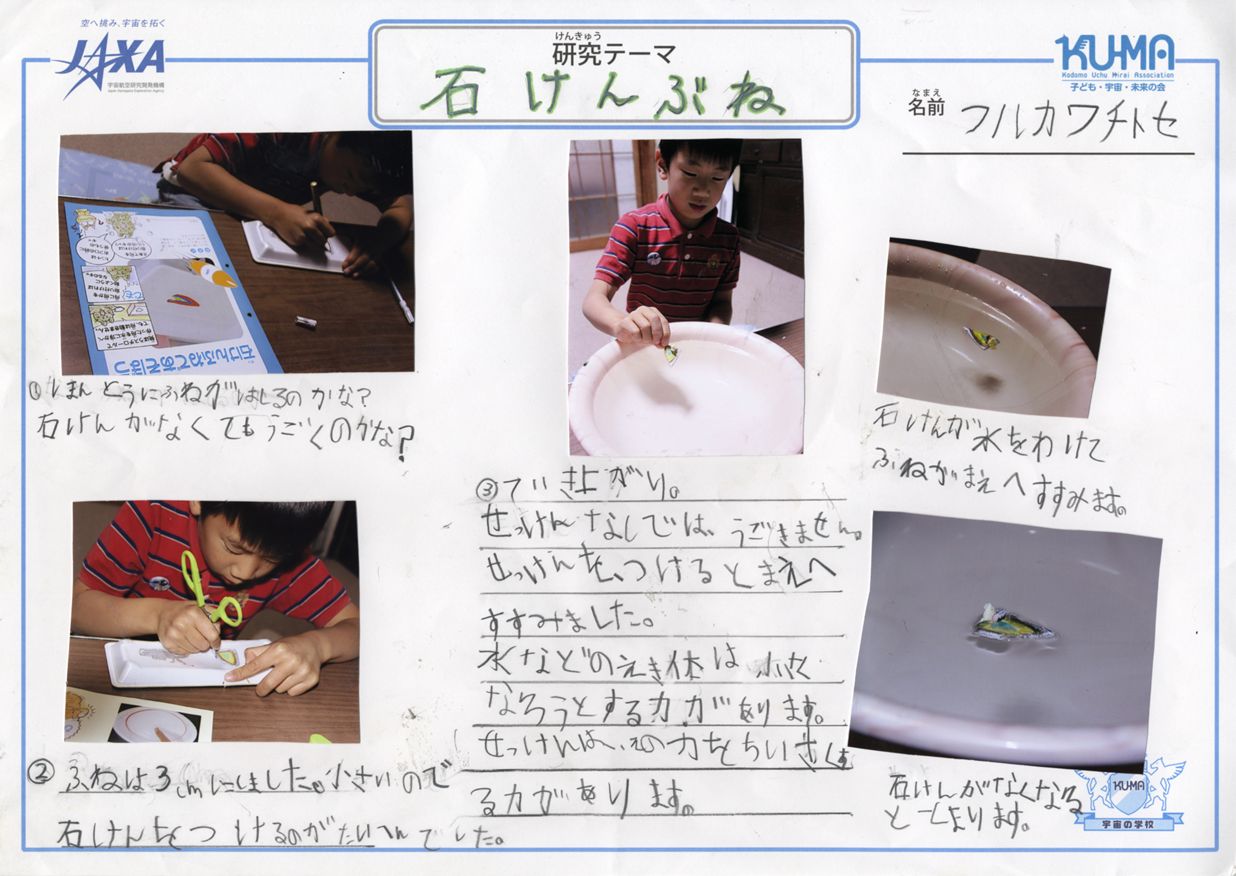 空へ挑み、宇宙を拓く
JAXA
宇宙航空研究開発機構
Japan Aerospace Exploration Agency
けんきゅう
研究テーマ
石けんぶね
KU-MA
Kodomo Uchu Mirai Association
子ども・宇宙・未来の会
なまえ
名前
フルカワチトセ
石けんぶねであそぼう
①ほんとうにふねがはしるのかな?
石けんがなくてもうごくのかな?
②ふねは3cmにしました。小さいので
石けんをつけるのがたいへんでした。
③できよがり。
せっけんなしでは、うごきません。
せっけんを、つけるとまえへ
すすみました。
水などのえき体は小さく
なろうとする力があります。
せっけんは、その力をちいさくす
る力があります。
石けんが水をわけて
ふねがまえへすすみます。
石けんがなくなる
ととまります。
KU-MA
宇宙の学校